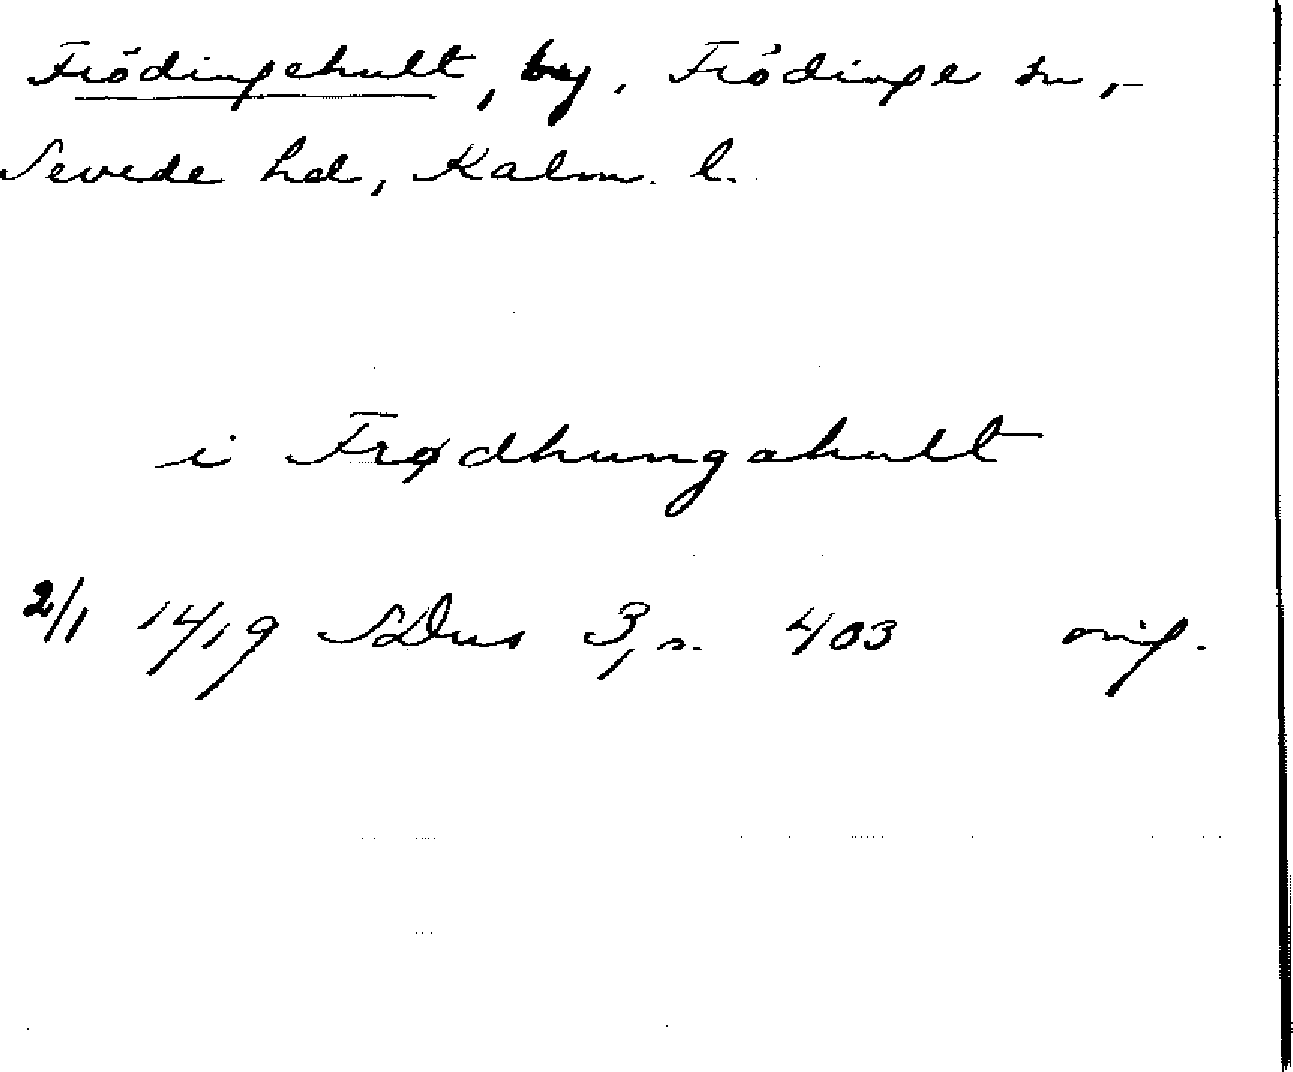 Frödingehult, by, Frödinge sn,
Sevede hd, Kalm. l.
i Frødhungahult
2/1 1419 SDns 3, s. 403 orig.